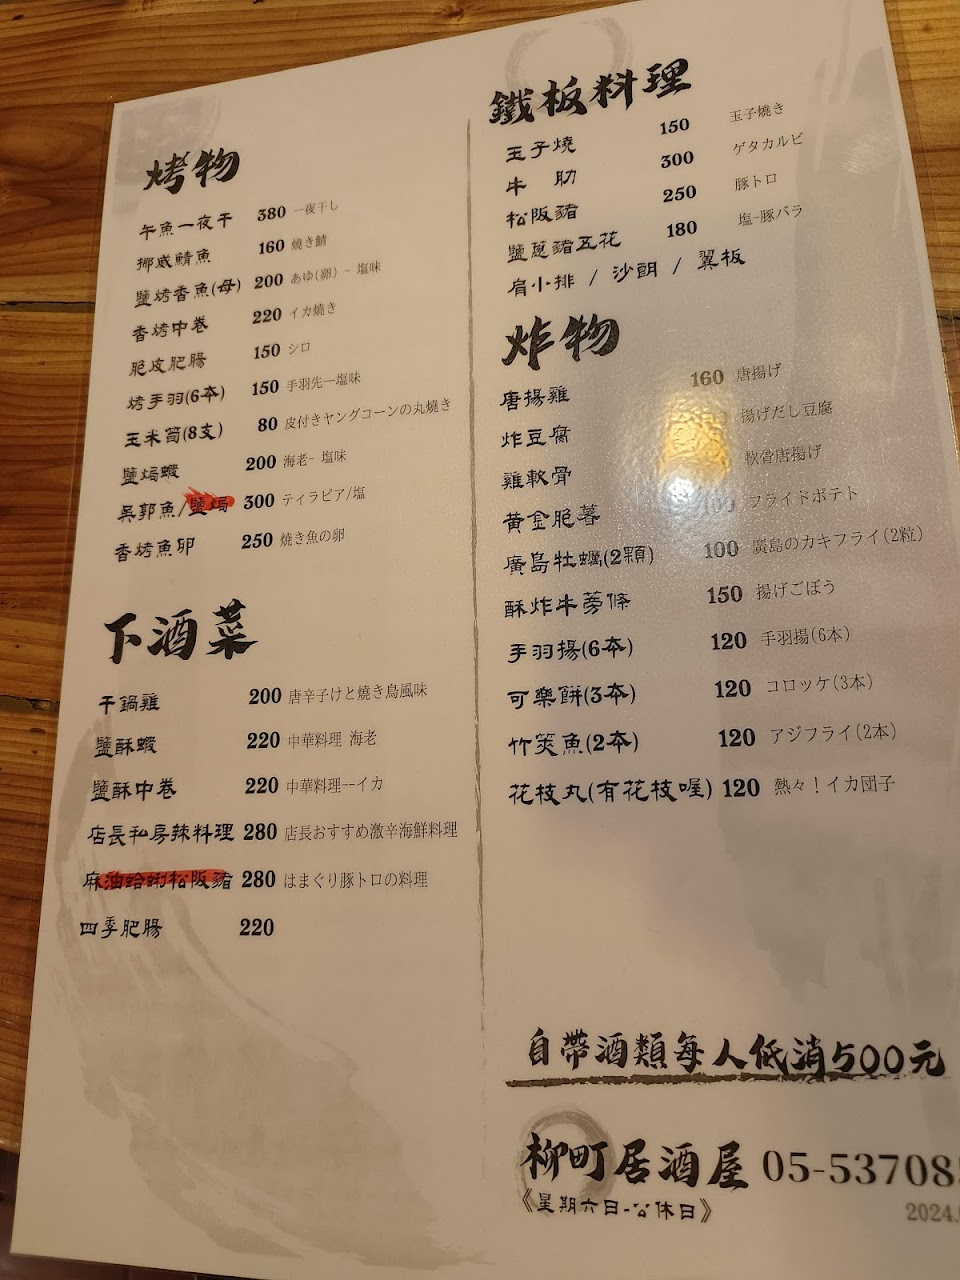 烤物
午魚一夜干 380 一夜干し
挪威鯖魚 160 焼き鯖
鹽烤香魚(母) 200 あゆ(卵) - 塩味
香烤中卷 220 イカ焼き
脆皮肥腸 150 シロ
烤手羽(6本) 150 手羽先一塩味
玉米筍(8支) 80 皮付きヤングコーンの丸焼き
鹽焗蝦 200 海老- 塩味
吳郭魚/鹽焗 300 ティラピア/塩
香烤魚卵 250 焼き魚の卵
下酒菜
干鍋雞 200 唐辛子けと焼き鳥風味
鹽酥蝦 220 中華料理 海老
鹽酥中卷 220 中華料理--イカ
店長私房辣料理 280 店長おすすめ激辛海鮮料理
麻油蛤蜊松阪豬 280 はまぐり豚トロの料理
四季肥腸 220
鐵板料理
玉子燒 150 玉子焼き
牛 肋 300 ゲタカルビ
松阪豬 250 豚トロ
鹽蔥豬五花 180 塩-豚バラ
肩小排 / 沙朗 / 翼板
炸物
唐揚雞 160 唐揚げ
炸豆腐 揚げだし豆腐
雞軟骨 軟骨唐揚げ
黃金脆薯 100 フライドポテト
廣島牡蠣(2顆) 100 廣島のカキフライ(2粒)
酥炸牛蒡條 150 揚げごぼう
手羽揚(6本) 120 手羽揚(6本)
可樂餅(3本) 120 コロッケ(3本)
竹筴魚(2本) 120 アジフライ(2本)
花枝丸(有花枝喔) 120 熱々！イカ団子
自帶酒類每人低消500元
柳町居酒屋 05-537085
《星期六日-公休日》
2024.